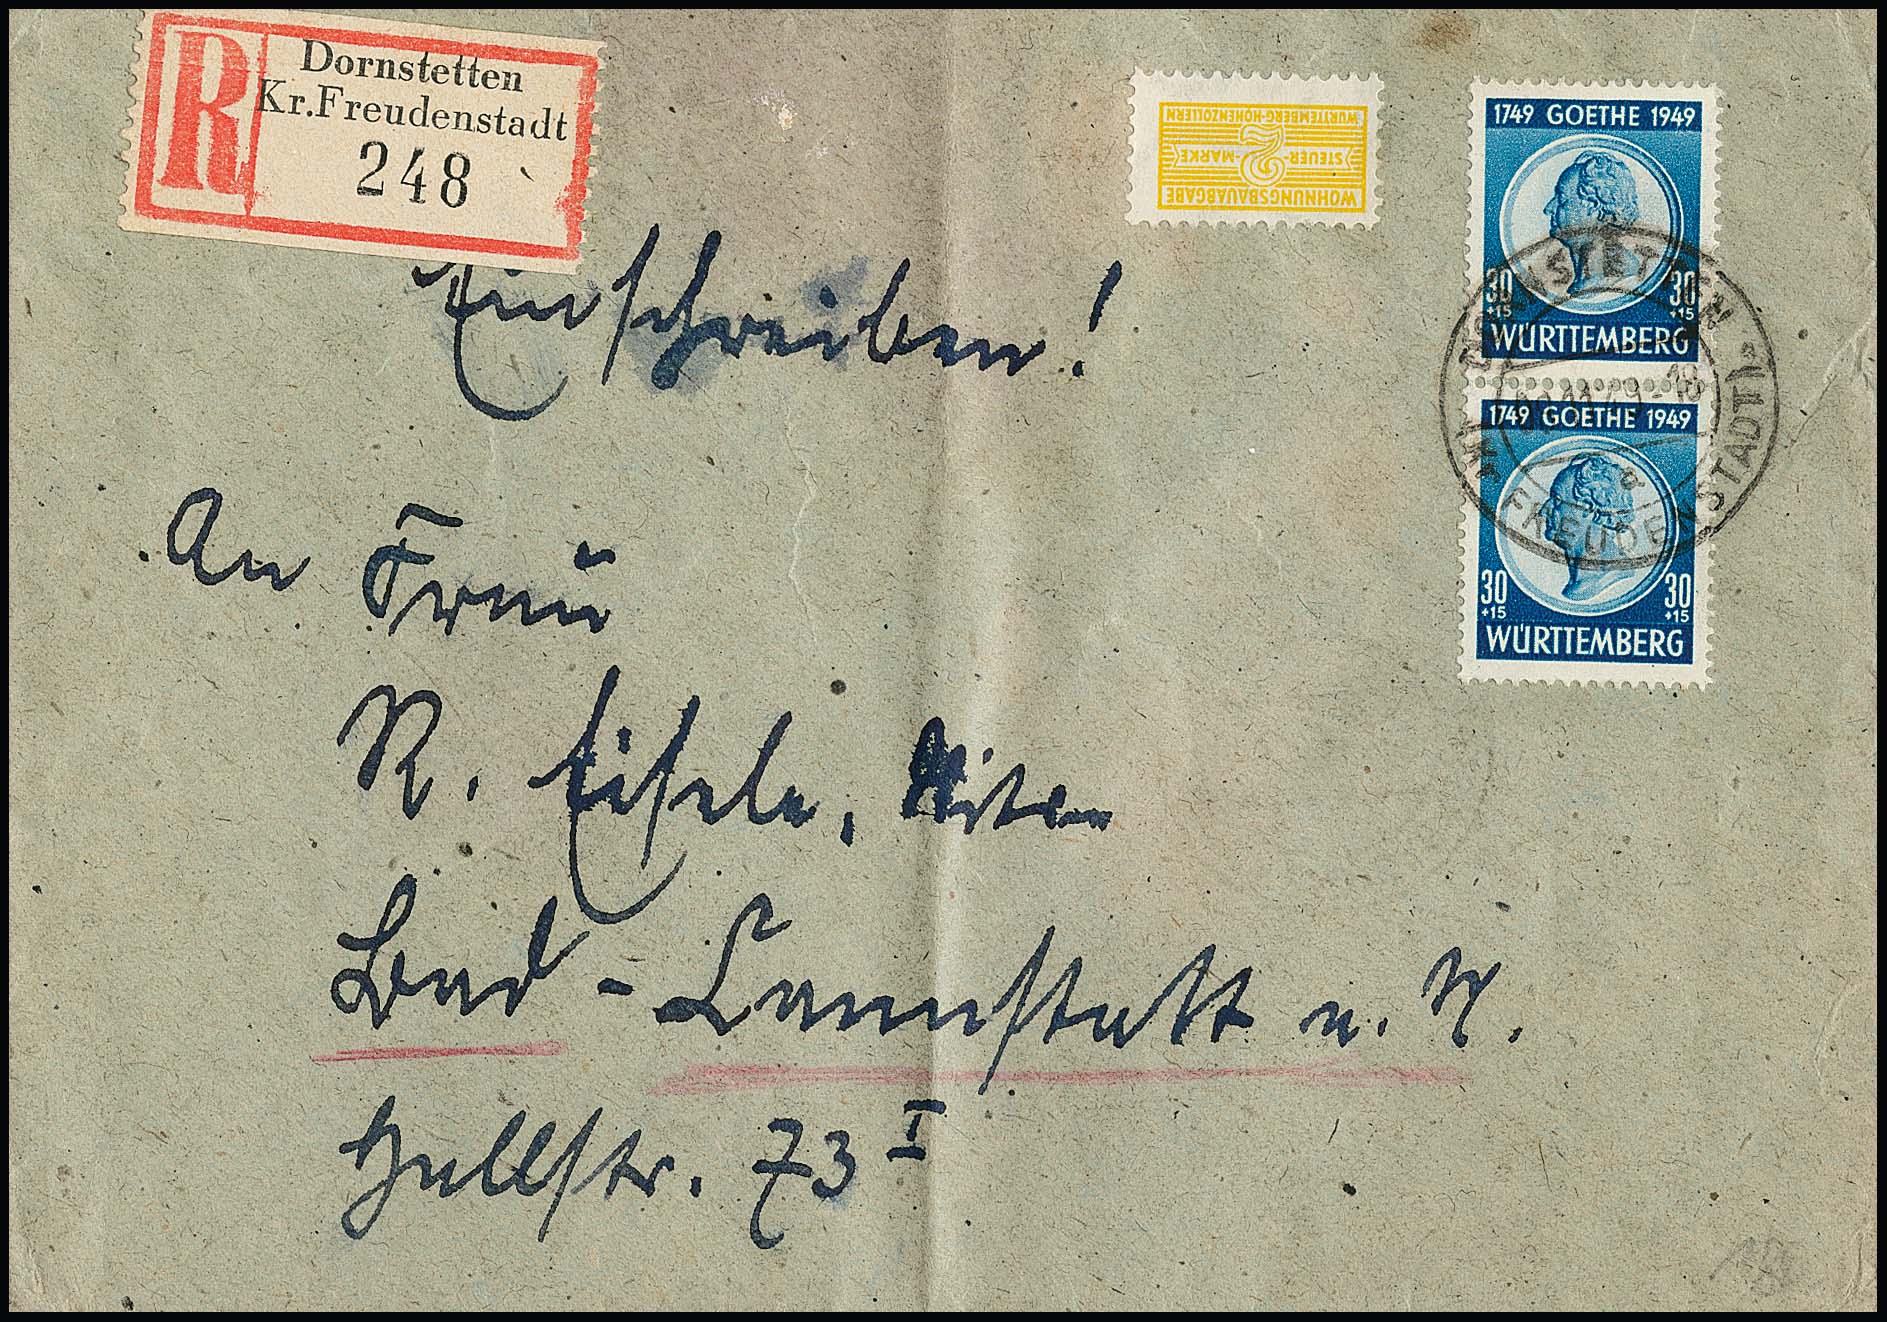 R
Dornstetten
Kr.Freudenstadt
248
WOHNUNGSBAUABGABE
STEUER-2-MARKE
WÜRTTEMBERG-HOHENZOLLERN
1749 GOETHE 1949
30 30
+15 +15
WÜRTTEMBERG
1749 GOETHE 1949
30 30
+15 +15
WÜRTTEMBERG
DORNSTETTEN
.11.49-18
a
FREUDENSTADT
Einschreiben!
An Frau
R. Eisele,
Bad-Cannstatt a. N.
Hallstr. 73 I